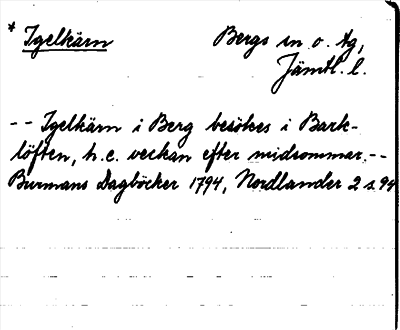 * Igelkärn Bergs sn o. tg,
Jämtl. l.
-- Igelkärn i Berg besökes i Bark-
löften, h.e. veckan efter midsommar. --
Burmans Dagböcker 1794, Nordlander 2 s. 94